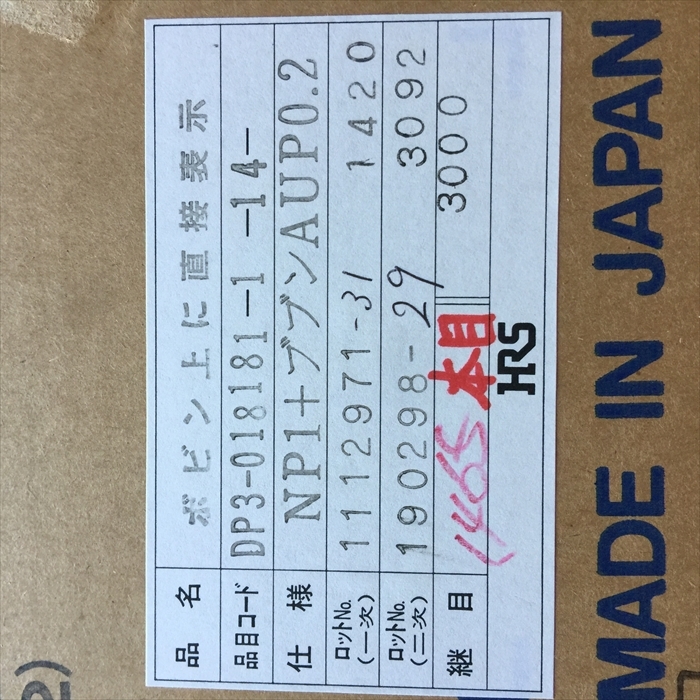 品名 ボビン上に直接表示
品目コード DP3-018181-1 -14-
仕様 NP1+ブブンAUP0.2
ロットNo.(一次) 1112971-31 1420
ロットNo.(二次) 190298-29 3092
継目 1465 本目 3000
HRS
MADE IN JAPAN